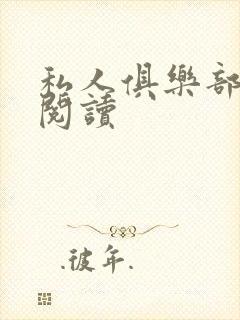 私人俱樂部
閱讀
.彼年.